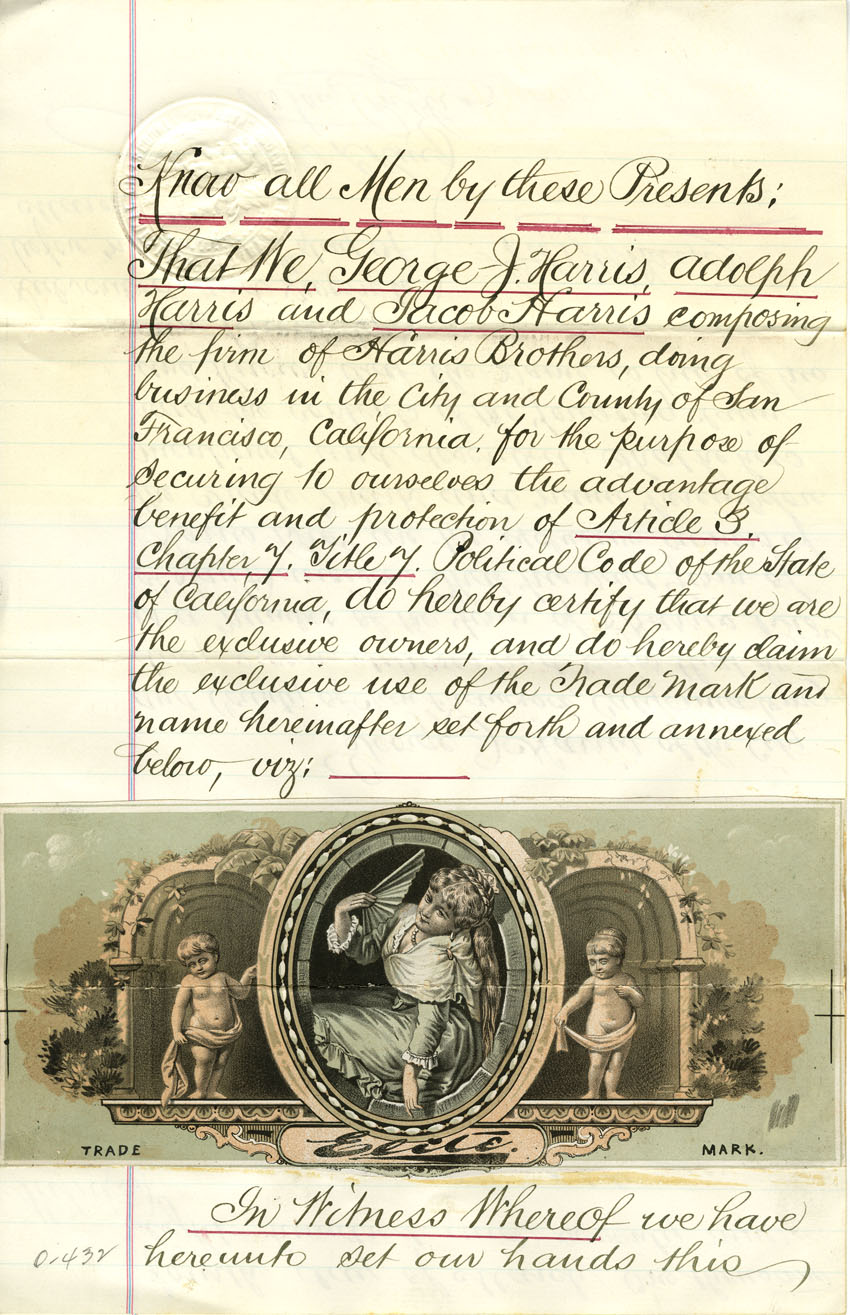 Know all Men by these Presents:
That We, George J. Harris, Adolph
Harris and Jacob Harris composing
the firm of Harris Brothers, doing
business in the City and County of San
Francisco, California, for the purpose of
securing to ourselves the advantage
benefit and protection of Article 3.
Chapter 7. Title 7. Political Code of the State
of California, do hereby certify that we are
the exclusive owners, and do hereby claim
the exclusive use of the Trade Mark and
name hereinafter set forth and annexed
below, viz:
TRADE MARK.
In Witness Whereof we have
0.432 hereunto set our hands this